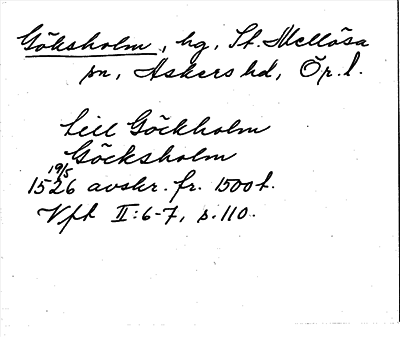 Göksholm, hg, St. Mellösa
sn, Askers hd, Ör. l.
till Göckholm
Göcksholm
19/5
1526 avskr. fr. 1500t.
Vft II:6-7, s. 110.